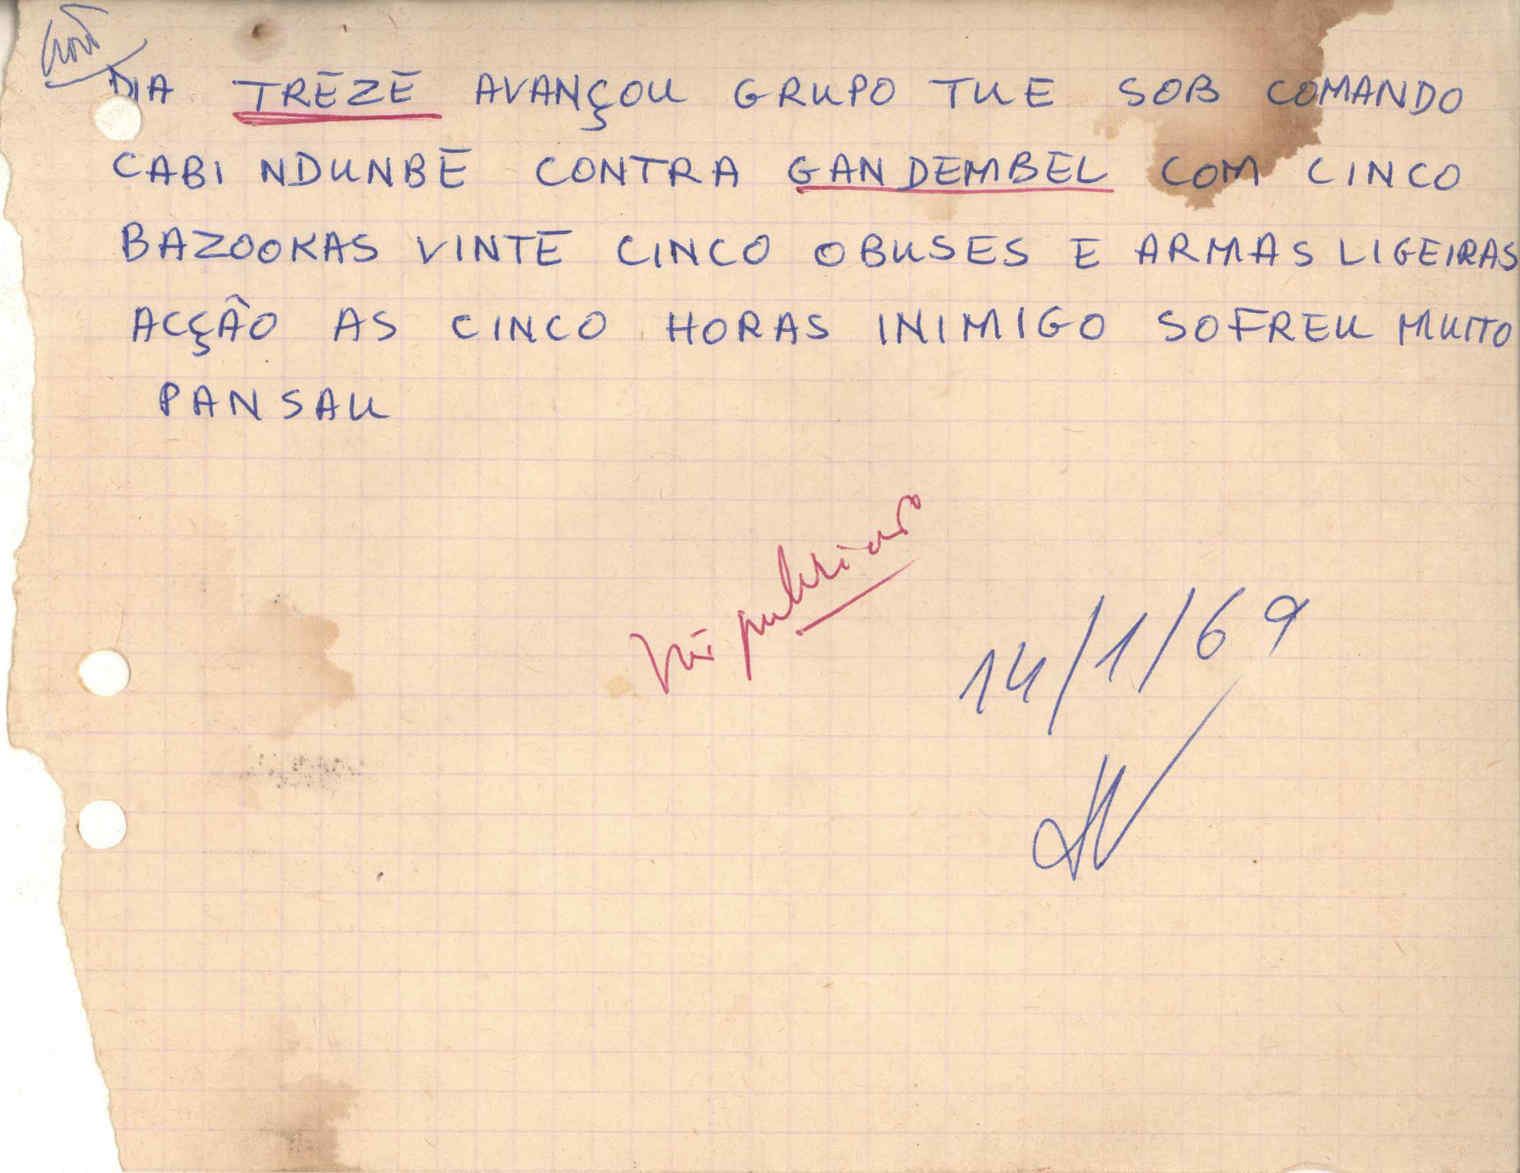 DIA TREZE AVANÇOU GRUPO TUE SOB COMANDO
CABI NDUNBE CONTRA GANDEMBEL COM CINCO
BAZOOKAS VINTE CINCO OBUSES E ARMAS LIGEIRAS
ACÇÃO AS CINCO HORAS INIMIGO SOFREU MUITO
PANSAU
14/1/69